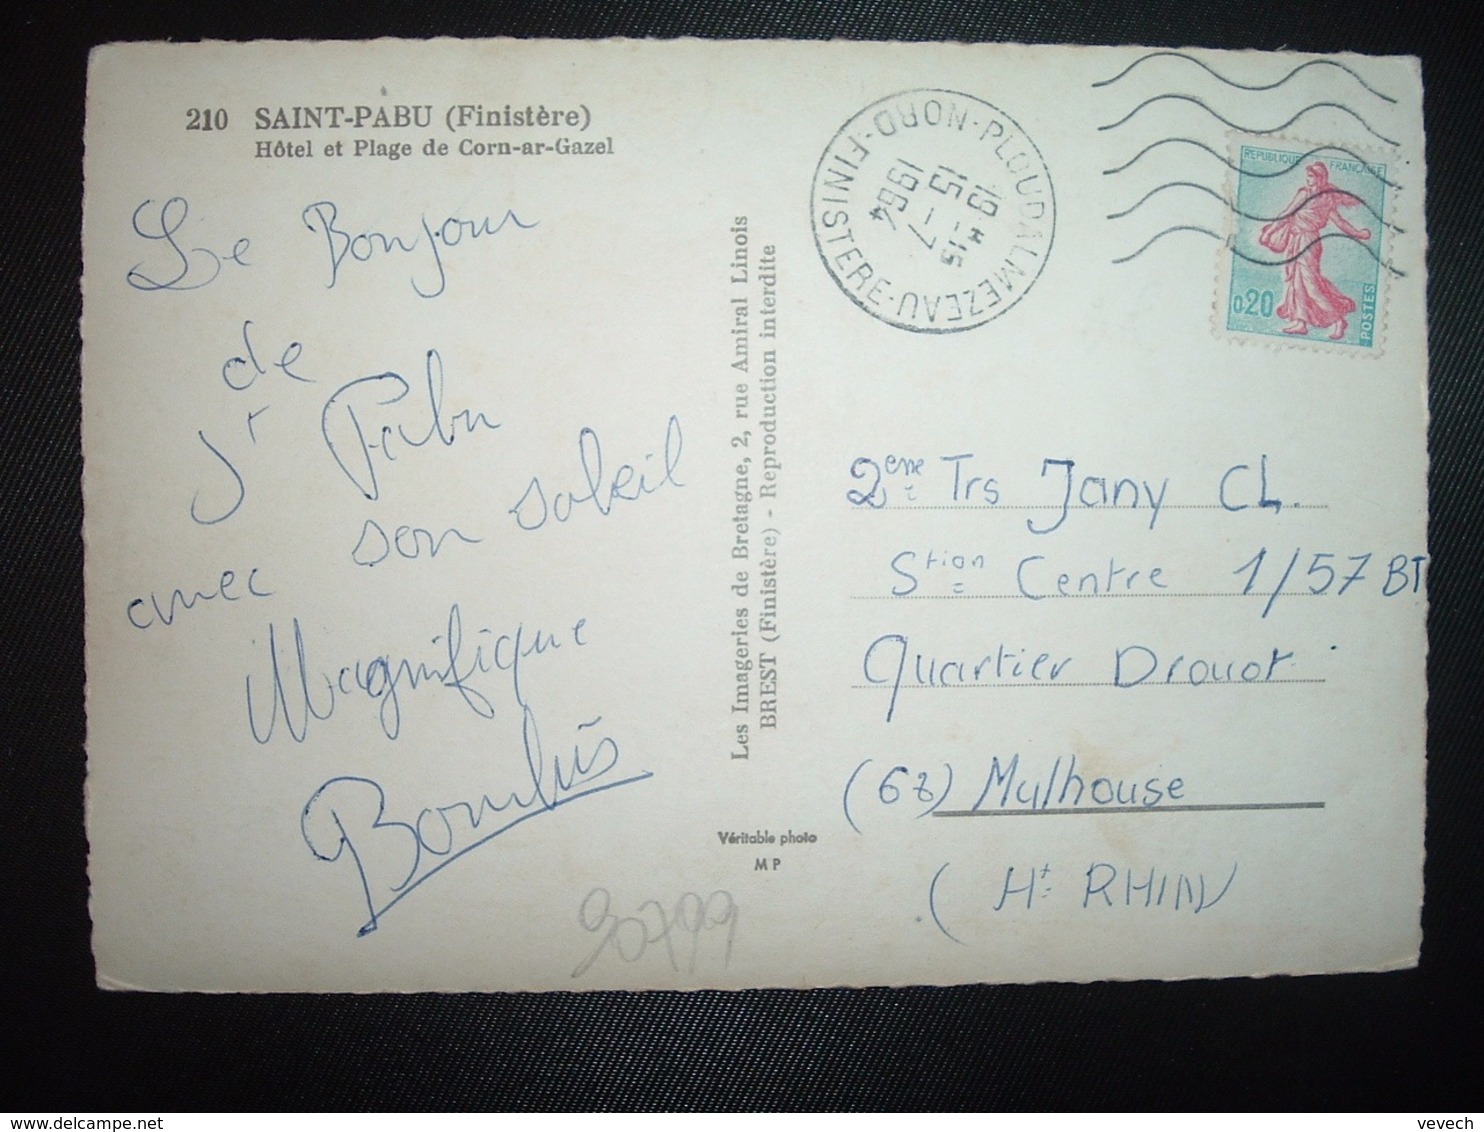 210 SAINT-PABU (Finistère)
Hôtel et Plage de Corn-ar-Gazel
Le Bonjour
de
St Pabu
avec son soleil
Magnifique
Les Imageries de Bretagne, 2, rue Amiral Linois
BREST (Finistère) - Reproduction interdite
Véritable photo
M P
90799
PLOUDALMEZEAU-FINISTERE-FINISTERE-NORD
19H-15
15-7
1964
REPUBLIQUE FRANÇAISE
0,20
POSTES
2eme Trs Jany CL.
Stion Centre 1/57 BT
Quartier Drouot
(68) Mulhouse
(Ht RHIN)
vevech